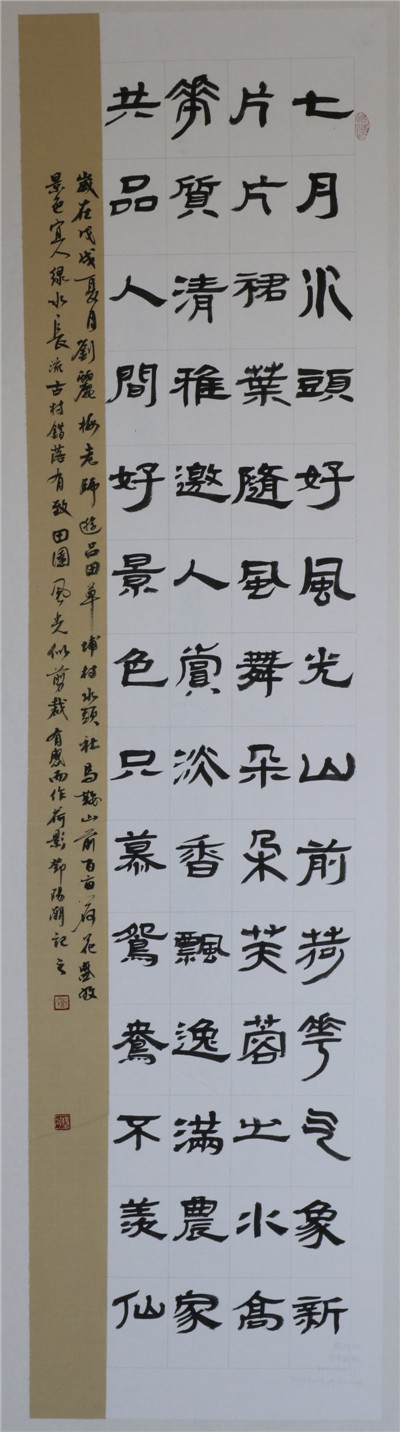 七月水頭好風光山前荷花氣象新
片片裙葉隨風舞朵朵芙蓉出水高
花質清雅邀人賞淡香飄逸滿農家
共品人間好景色只慕鴛鴦不羨仙
歲在戊戌夏月劉麗梅老師遊呂田草埔村水頭社馬鞍山前百畝荷花盛放
景色宜人綠水長流古村錯落有致田園風光似剪裁有感而作荷影鄧陽潮記之